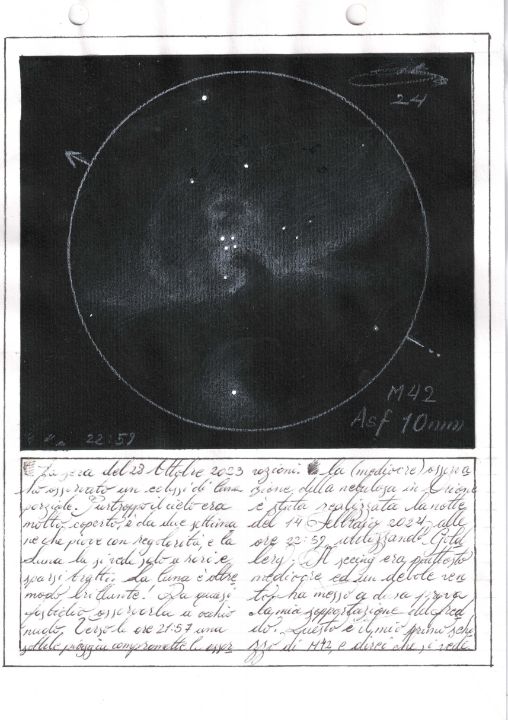 24
M42
Asf 10mm
22:59
La sera del 28 Ottobre 2023
ho osservato un eclissi di luna
parziale. Purtroppo il cielo era
molto coperto, è da due settima
ne che piove con regolarità, e la
Luna la si vede solo a rari e
sparsi tratti. La luna è oltre
modo brillante! Da quasi
fastidio osservarla a occhio
nudo. Verso le ore 21:57 una
sottile pioggia compromette le osser
vazioni. la (mediocre) osserva
zione della nebulosa in Orione
è stata realizzata la notte
del 14 Febbraio 2024 alle
ore 22:59 utilizzando
Il seeing era piuttosto
mediocre ed un debole ven
to ha messo a dura prova
la mia sopportazione del fred
do. Questo è il mio primo schi
zzo di M42, e direi che si vede